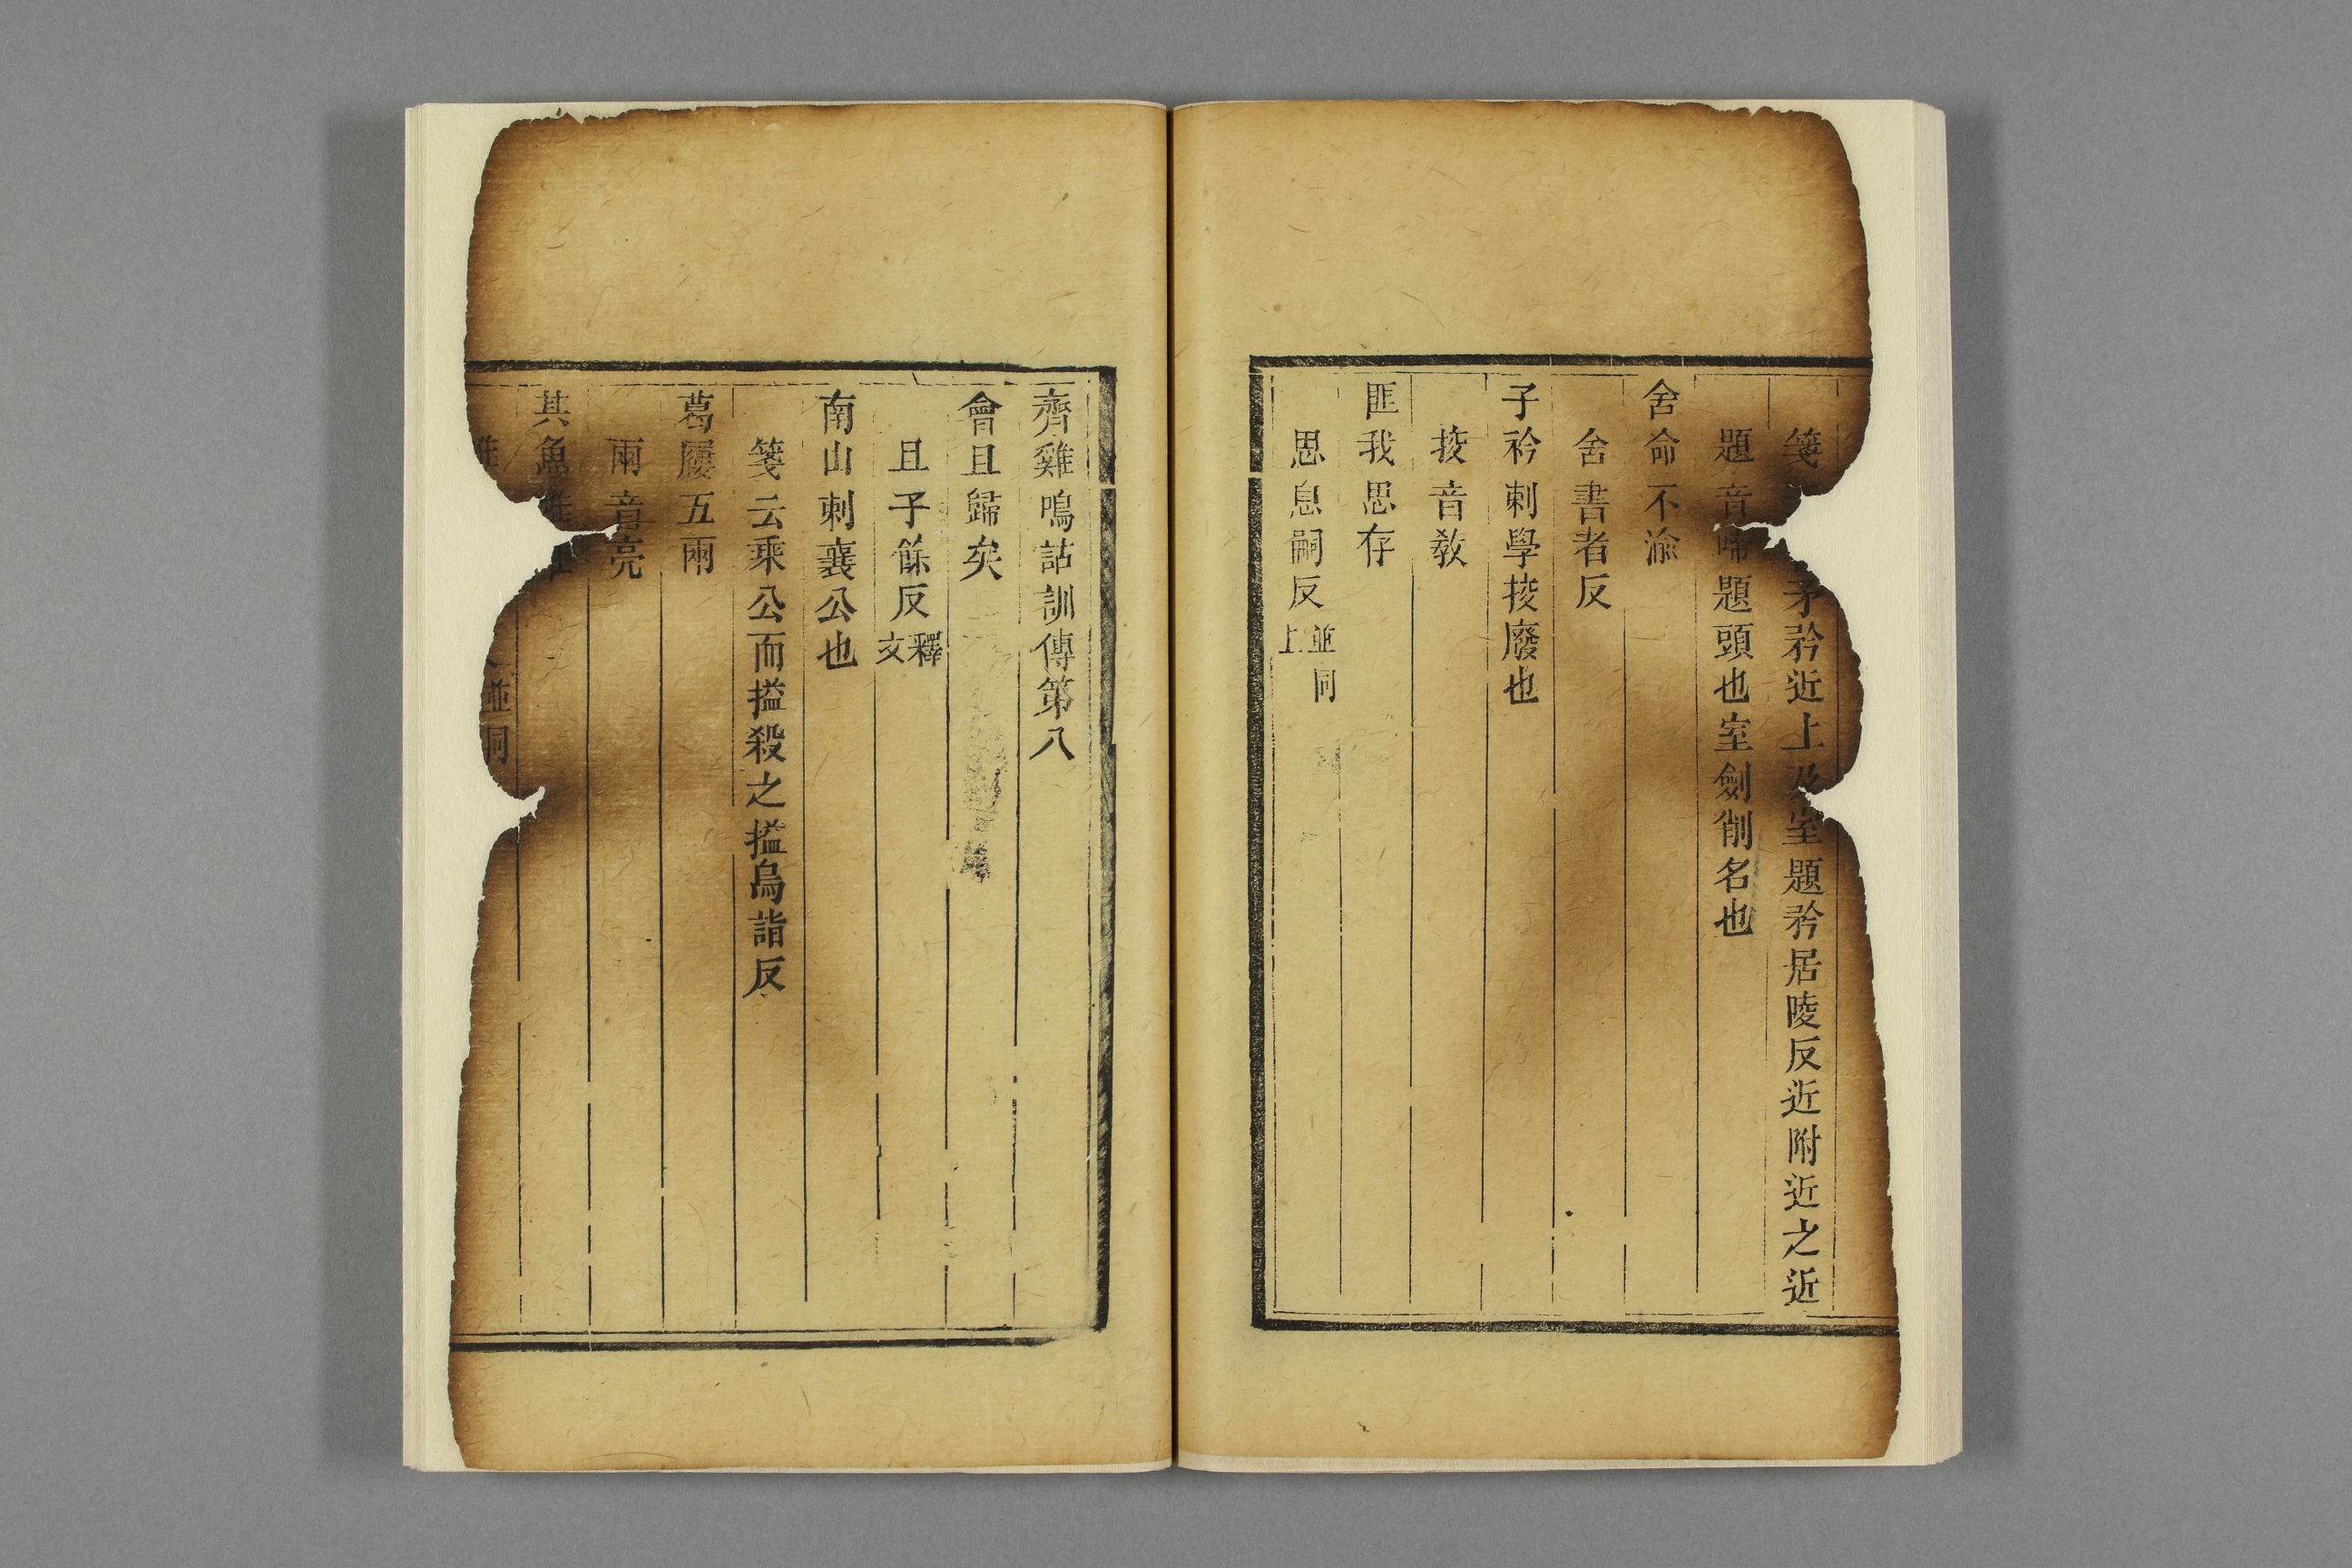 箋 矛矜近上及室題矜居陵反近附近之近
題音啼題頭也室劍削名也
舍命不渝
舍書者反
子衿刺學挍廢也
挍音教
匪我思存
思息嗣反並同上
齊雞鳴詁訓傳第八
會且歸矣
且子餘反釋文
南山刺襄公也
箋云乘公而搤殺之搤烏詣反
葛屨五兩
兩音亮
其魚
並同